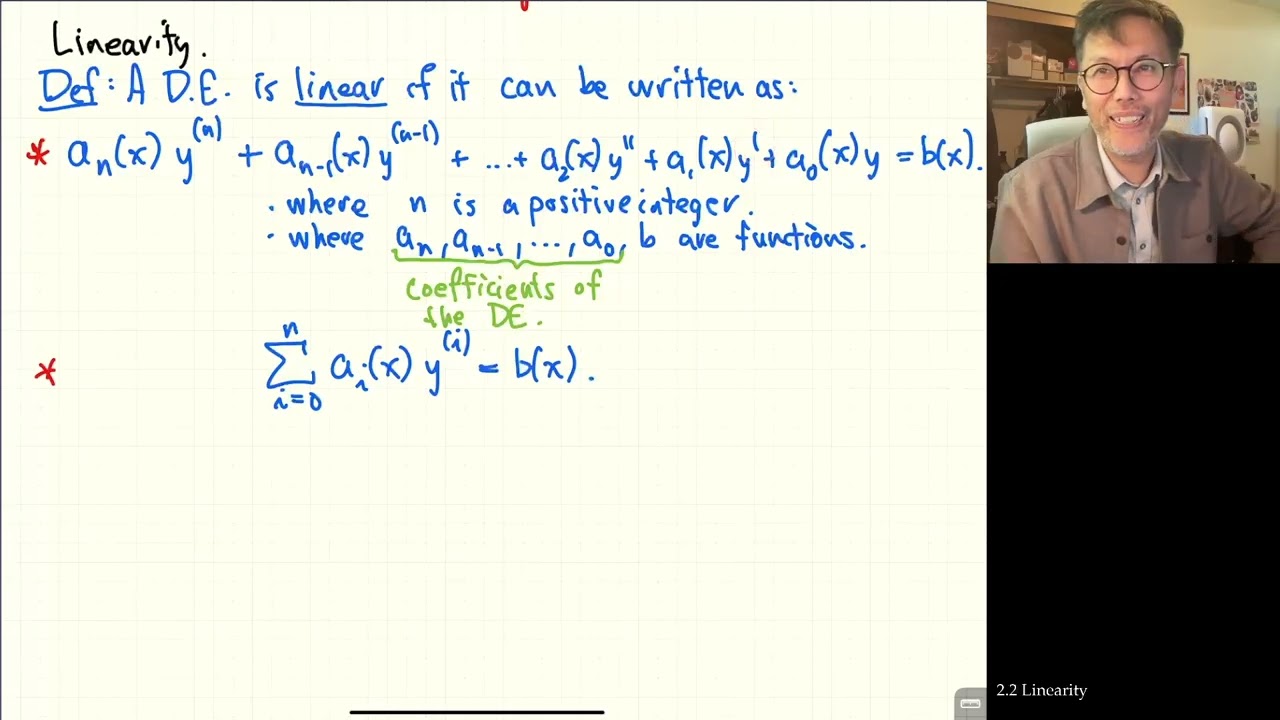 Linearity.
Def: A D.E. is linear if it can be written as:
* aₙ(x) y⁽ⁿ⁾ + aₙ₋₁(x) y⁽ⁿ⁻¹⁾ + ... + a₂(x) y'' + a₁(x) y' + a₀(x) y = b(x).
· where n is a positive integer.
· where aₙ, aₙ₋₁, ..., a₀, b are functions.
coefficients of
the DE.
* ∑ᵢ₌₀ⁿ aᵢ(x) y⁽ⁱ⁾ = b(x).
2.2 Linearity